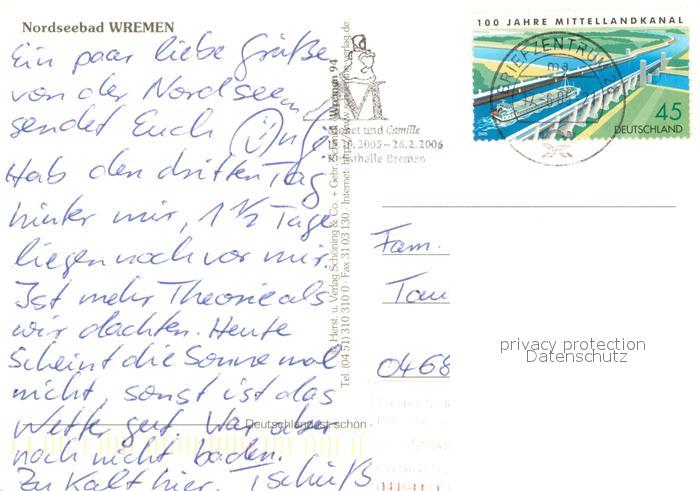 Nordseebad WREMEN
Ein paar liebe Grüße
von der Nordsee
sendet Euch
Hab den dritten Tag
hinter mir, 1 1/2 Tage
liegen noch vor mir.
Ist mehr Theorie als
wir dachten. Heute
scheint die Sonne mal
nicht, sonst ist das
Wetter gut. War aber
noch nicht baden.
Zu kalt hier. Tschüß
Deutschland ist schön -
Wremen 94
© Herst. u. Verlag Schöning & Co. + Gebr.
Tel. (04 51) 310 310 0 · Fax 31 03 130 · Internet:
Monet und Camille
15.10.2005 – 26.2.2006
Kunsthalle Bremen
BRIEFZENTRUM
100 JAHRE MITTELLANDKANAL
45
DEUTSCHLAND
2005
Fam.
Tau
0468
privacy protection
Datenschutz